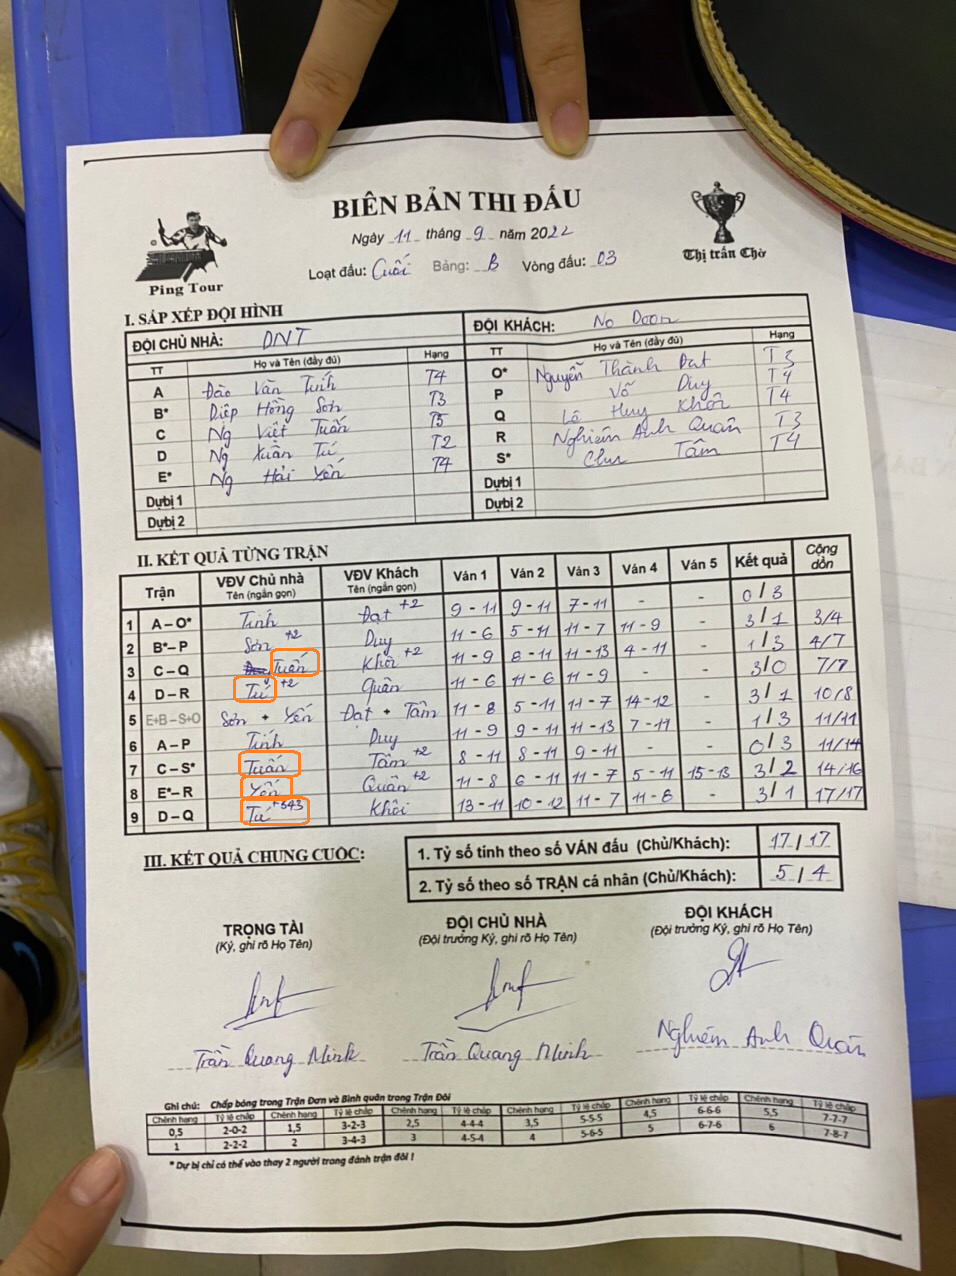 BIÊN BẢN THI ĐẤU
Ngày 11 tháng 9 năm 2022
Loạt đấu: Cuối Bảng: B Vòng đấu: 03
Ping Tour
Thị trấn Chờ
I. SẮP XẾP ĐỘI HÌNH
ĐỘI CHỦ NHÀ: DNT ĐỘI KHÁCH: No Doon
TT Họ và Tên (đầy đủ) Hạng TT Họ và Tên (đầy đủ) Hạng
A Đào Văn Tính T4 O* Nguyễn Thành Đạt T3
B* Diệp Hồng Sơn T3 P Võ Duy T4
C Ng Việt Tuấn T5 Q Lê Huy Khôi T4
D Ng Xuân Tú T2 R Nghiêm Anh Quân T3
E* Ng Hải Yến T4 S* Chu Tâm T4
Dựbị 1 Dựbị 1
Dựbị 2 Dựbị 2
II. KẾT QUẢ TỪNG TRẬN
Trận VĐV Chủ nhà Tên (ngắn gọn) VĐV Khách Tên (ngắn gọn) Ván 1 Ván 2 Ván 3 Ván 4 Ván 5 Kết quả Cộng dồn
1 A – O* Tính Đạt +2 9 - 11 9 - 11 7 - 11 - - 0 / 3
2 B* – P Sơn +2 Duy 11 - 6 5 - 11 11 - 7 11 - 9 - 3 / 1 3/4
3 C – Q Tuấn Khôi +2 11 - 9 8 - 11 11 - 13 4 - 11 - 1 / 3 4/7
4 D – R Tú +2 Quân 11 - 6 11 - 6 11 - 9 - - 3 / 0 7/7
5 E+B – S+O Sơn + Yến Đạt + Tâm 11 - 8 5 - 11 11 - 7 14 - 12 - 3 / 1 10/8
6 A – P Tính Duy 11 - 9 9 - 11 11 - 13 7 - 11 - 1 / 3 11/11
7 C – S* Tuấn Tâm +2 8 - 11 8 - 11 9 - 11 - - 0 / 3 11/14
8 E* – R Yến Quân +2 11 - 8 6 - 11 11 - 7 5 - 11 15 - 13 3 / 2 14/16
9 D – Q Tú +343 Khôi 13 - 11 10 - 12 11 - 7 11 - 6 - 3 / 1 17/17
III. KẾT QUẢ CHUNG CUỘC:
1. Tỷ số tính theo số VÁN đấu (Chủ/Khách): 17 / 17
2. Tỷ số theo số TRẬN cá nhân (Chủ/Khách): 5 / 4
TRỌNG TÀI ĐỘI CHỦ NHÀ ĐỘI KHÁCH
(Ký, ghi rõ Họ Tên) (Đội trưởng Ký, ghi rõ Họ Tên) (Đội trưởng Ký, ghi rõ Họ Tên)
Trần Quang Minh Trần Quang Minh Nghiêm Anh Quân
Ghi chú: Chấp bóng trong Trận Đơn và Bình quân trong Trận Đôi
Chênh hạng Tỷ lệ chấp Chênh hạng Tỷ lệ chấp Chênh hạng Tỷ lệ chấp Chênh hạng Tỷ lệ chấp Chênh hạng Tỷ lệ chấp Chênh hạng Tỷ lệ chấp
0,5 2-0-2 1,5 3-2-3 2,5 4-4-4 3,5 5-5-5 4,5 6-6-6 5,5 7-7-7
1 2-2-2 2 3-4-3 3 4-5-4 4 5-6-5 5 6-7-6 6 7-8-7
* Dự bị chỉ có thể vào thay 2 người trong đánh trận đôi !